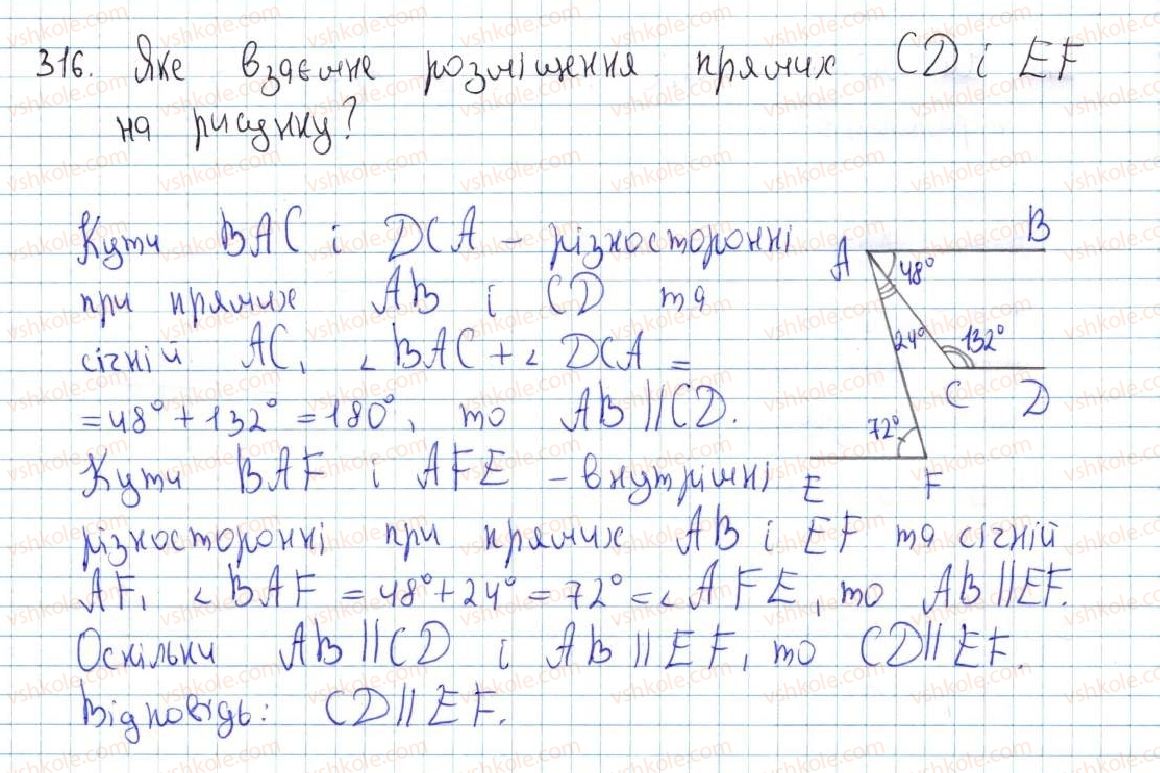 316. Яке взаємне розміщення прямих CD і EF
на рисунку?
Кути BAC і DCA – різносторонні
при прямих AB і CD та
січній AC, ∠BAC + ∠DCA =
= 48° + 132° = 180°, то AB || CD.
Кути BAF і AFE – внутрішні
різносторонні при прямих AB і EF та січній
AF, ∠BAF = 48° + 24° = 72° = ∠AFE, то AB || EF.
Оскільки AB || CD і AB || EF, то CD || EF.
Відповідь: CD || EF.
A B
48°
24° 132°
C D
72°
E F
vshkole.com